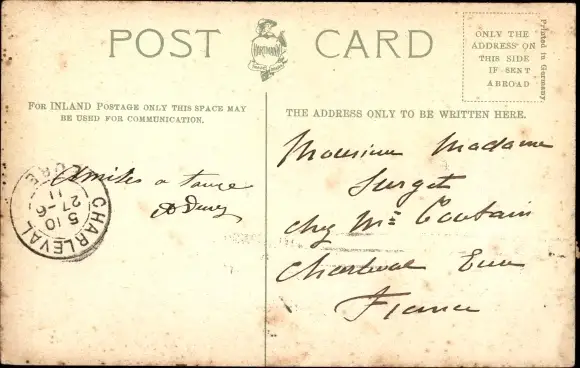 POST CARD
HARTMANN
ONLY THE
ADDRESS ON
THIS SIDE
IF SENT
ABROAD
Printed in Germany
FOR INLAND POSTAGE ONLY THIS SPACE MAY
BE USED FOR COMMUNICATION.
THE ADDRESS ONLY TO BE WRITTEN HERE.
CHARLEVAL
5 10
27-6
11
Amities a
Monsieur Madame
Surget
chez Mr
Charleval Eure
France